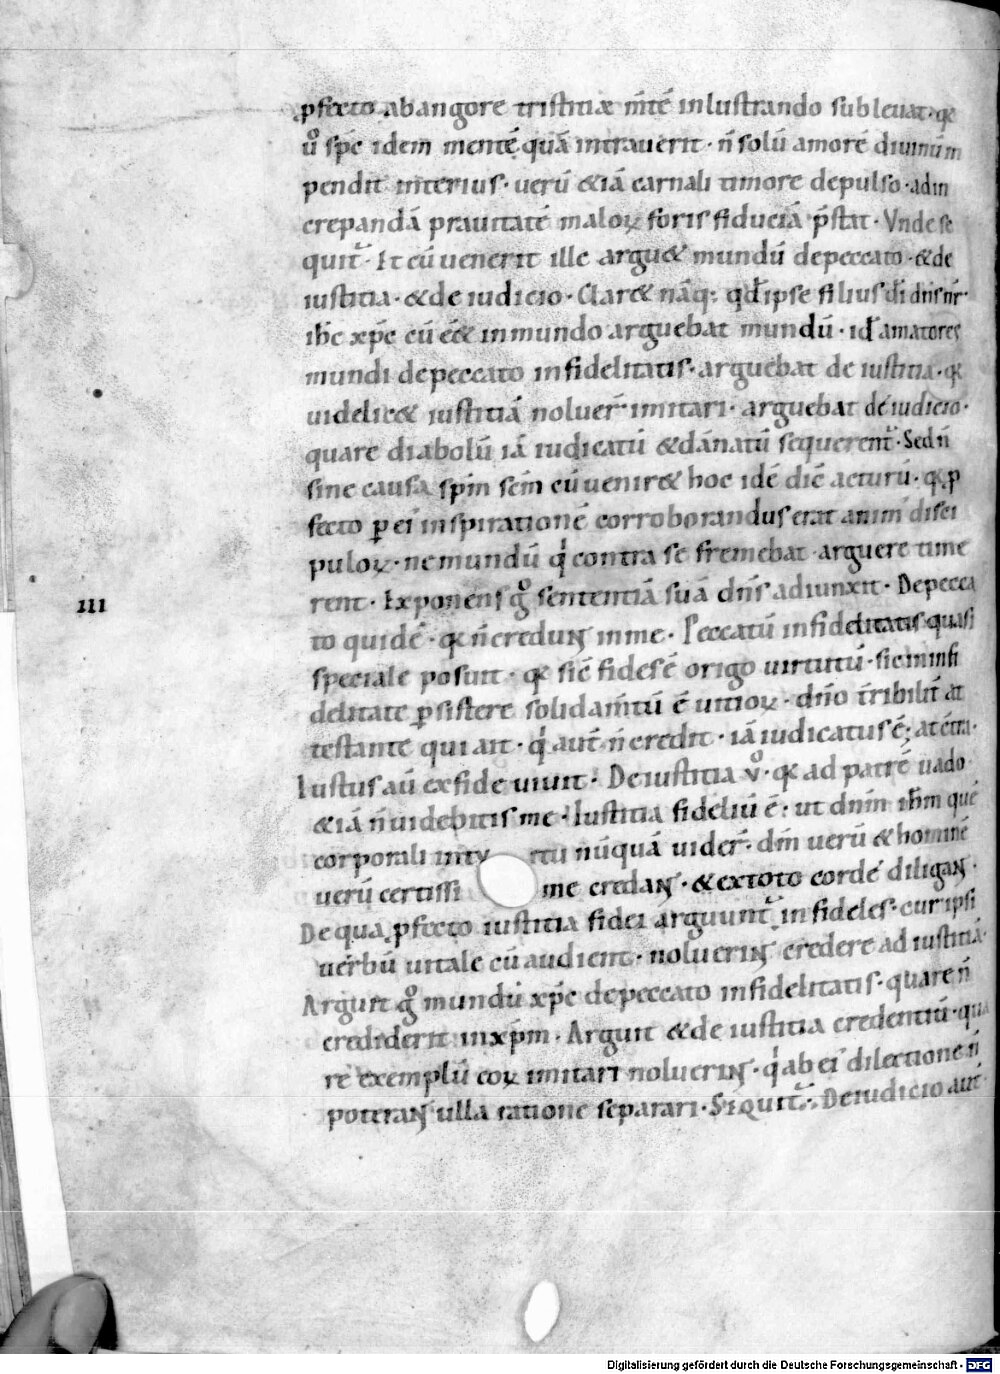 ꝓfecto abangore tristitiæ m̅te̅ inlustrando subleuat · qꝫ
u̅o sp̅c idem mente̅ qua̅ intrauerit · n̅ solu̅ amore̅ diuinu̅ im
pendit interius · ueru̅ &ia̅ carnali timore depulso · adin
crepanda̅ prauitate̅ maloꝝ foris fiducia̅ p̅stat · Vnde se
quit᷑ · Et cu̅ uenerit ille argu& mundu̅ depeccato · &de
iustitia · &de iudicio · Clar& na̅q; qđ ipse filius di̅ dn̅s nr̅ ·
ih̅c xp̅c cu̅ e̅& inmundo arguebat mundu̅ · id̅ amatores
mundi depeccato infidelitatis · arguebat de iustitia · qꝫ
uidelic& iustitia̅ noluer̅ imitari · arguebat de iudicio ·
quare diabolu̅ ia̅ iudicatu̅ &da̅natu̅ sequerent᷑ · Sed n̅
sine causa sp̅m sc̅m cu̅ uenir& hoc ide̅ dic̅ acturu̅ · qꝫ ꝓ
fecto ꝑ ei᾽ inspiratione̅ corroborandus erat anim᾽ disci
puloꝝ · ne mundu̅ q̇ contra se fremebat · arguere time
rent · Exponens g̊ sententia̅ sua̅ dn̅s adiunxit · Depecca
III
to quide̅ · qꝫ n̅ credunt inme · Peccatu̅ infidelitatis quasi
speciale posuit · qꝫ sic̅ fides e̅ origo uirtutu̅ · sic in infi
delitate ꝑsistere solidam̅tu̅ e̅ uitioꝝ · dn̅o t̅ribilit̅ at
testante qui ait · q̇ aut̅ n̅ credit · ia̅ iudicatus e̅; at e̅tra ·
Iustus au̅ exfide uiuit · De iustitia v̊ · qꝫ ad patre̅ uado
&ia̅ n̅ uidebitis me · Iustitia fideliu̅ e̅; ut dn̅m ih̅m que̅
corporali intu rtu nu̅qua̅ uider̅ · dm̅ ueru̅ & homine̅
ueru̅ certissi me credant · & extoto corde diligant ·
De qua ꝓfecto iustitia fidei arguunt᷑ infideles · cur ipsi
uerbu̅ uitale cu̅ audient · noluerint credere ad iustitia̅ ·
Arguit g̊ mundu̅ xp̅c depeccato infidelitatis · quare n̅
crediderit inxp̅m · Arguit &de iustitia credentiu̅ · qua
re exemplu̅ eoꝝ imitari noluerint · q̇ ab ei᾽ dilectione n̅
poterant ulla ratione separari · Seqvit᷑ · De iudicio aut̅
Digitalisierung gefördert durch die Deutsche Forschungsgemeinschaft - DFG